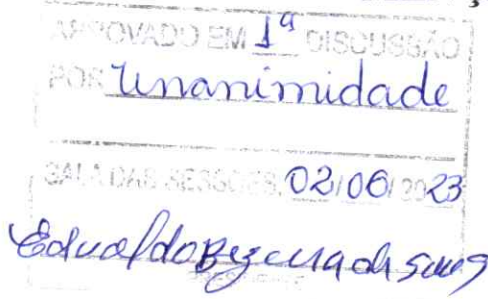 APROVADO EM 1ª DISCUSSÃO
POR Unanimidade
SALA DAS SESSÕES, 02/06/2023